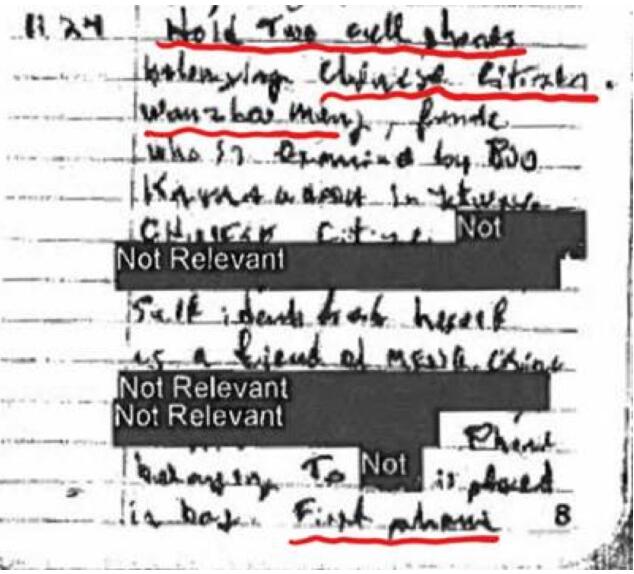 11:24 Hold Two cell phones
belonging Chinese Citizen.
Wanzhou Meng, female
who is examined by BSO
in
Chinese Citizen Not
Not Relevant
Self herself
is a friend of
Not Relevant
Not Relevant
Phone
belonging To Not is placed
in bag. First phone 8